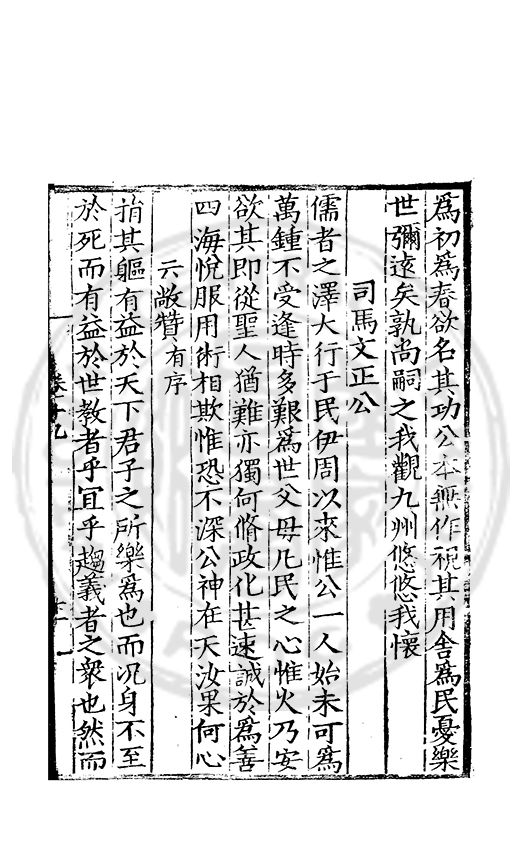 為初為春欲名其功公本無作視其用舍為民憂樂
世彌遠矣孰尚嗣之我觀九州悠悠我懷
司馬文正公
儒者之澤大行于民伊周以來惟公一人始未可為
萬鍾不受逢時多艱為世父母凡民之心惟火乃安
欲其即從聖人猶難亦獨何脩政化甚速誠於為善
四海悅服用術相欺惟恐不深公神在天汝果何心
云敞贊有序
捐其軀有益於天下君子之所樂為也而况身不至
於死而有益於世教者乎宜乎趨義者之衆也然而